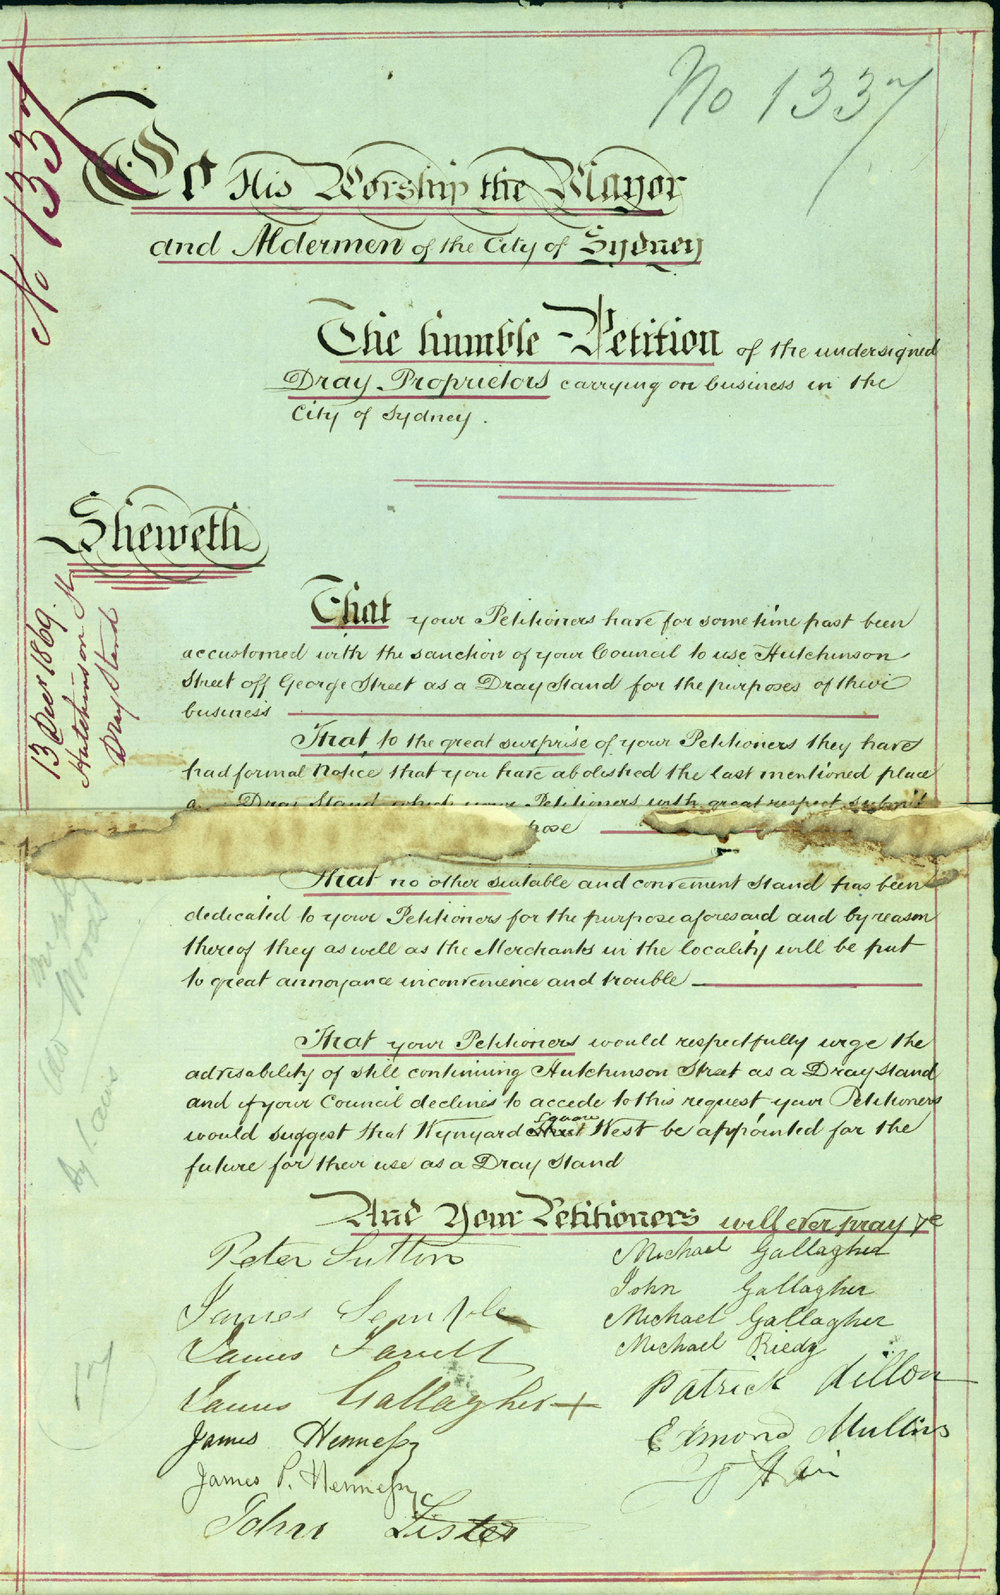 No 1337
No 1337
To His Worship the Mayor
and Aldermen of the City of Sydney
The humble Petition of the undersigned
Dray Proprietors carrying on business in the
City of Sydney.
Sheweth
13 Decr 1869.
Hutchinson St
Dray Stand
That your Petitioners have for some time past been
accustomed with the sanction of your Council to use Hutchinson
Street off George Street as a Dray Stand for the purposes of their
business
That to the great surprise of your Petitioners they have
had formal Notice that you have abolished the last mentioned place
a Dray Stand which your Petitioners with great respect submit
pose
That no other suitable and convenient Stand has been
dedicated to your Petitioners for the purpose aforesaid and by reason
thereof they as well as the Merchants in the locality will be put
to great annoyance inconvenience and trouble
That your Petitioners would respectfully urge the
advisability of still continuing Hutchinson Street as a Dray Stand
and if your Council declines to accede to this request your Petitioners
would suggest that Wynyard Square West be appointed for the
future for their use as a Dray Stand
And Your Petitioners will ever pray &c
Peter Sutton
James Semple
James
James Gallagher
James Hennessy
James P. Hennessy
John Lister
Michael Gallagher
John Gallagher
Michael Gallagher
Michael Riedy
Patrick Dillon
Edmond Mullins
By Laws
17